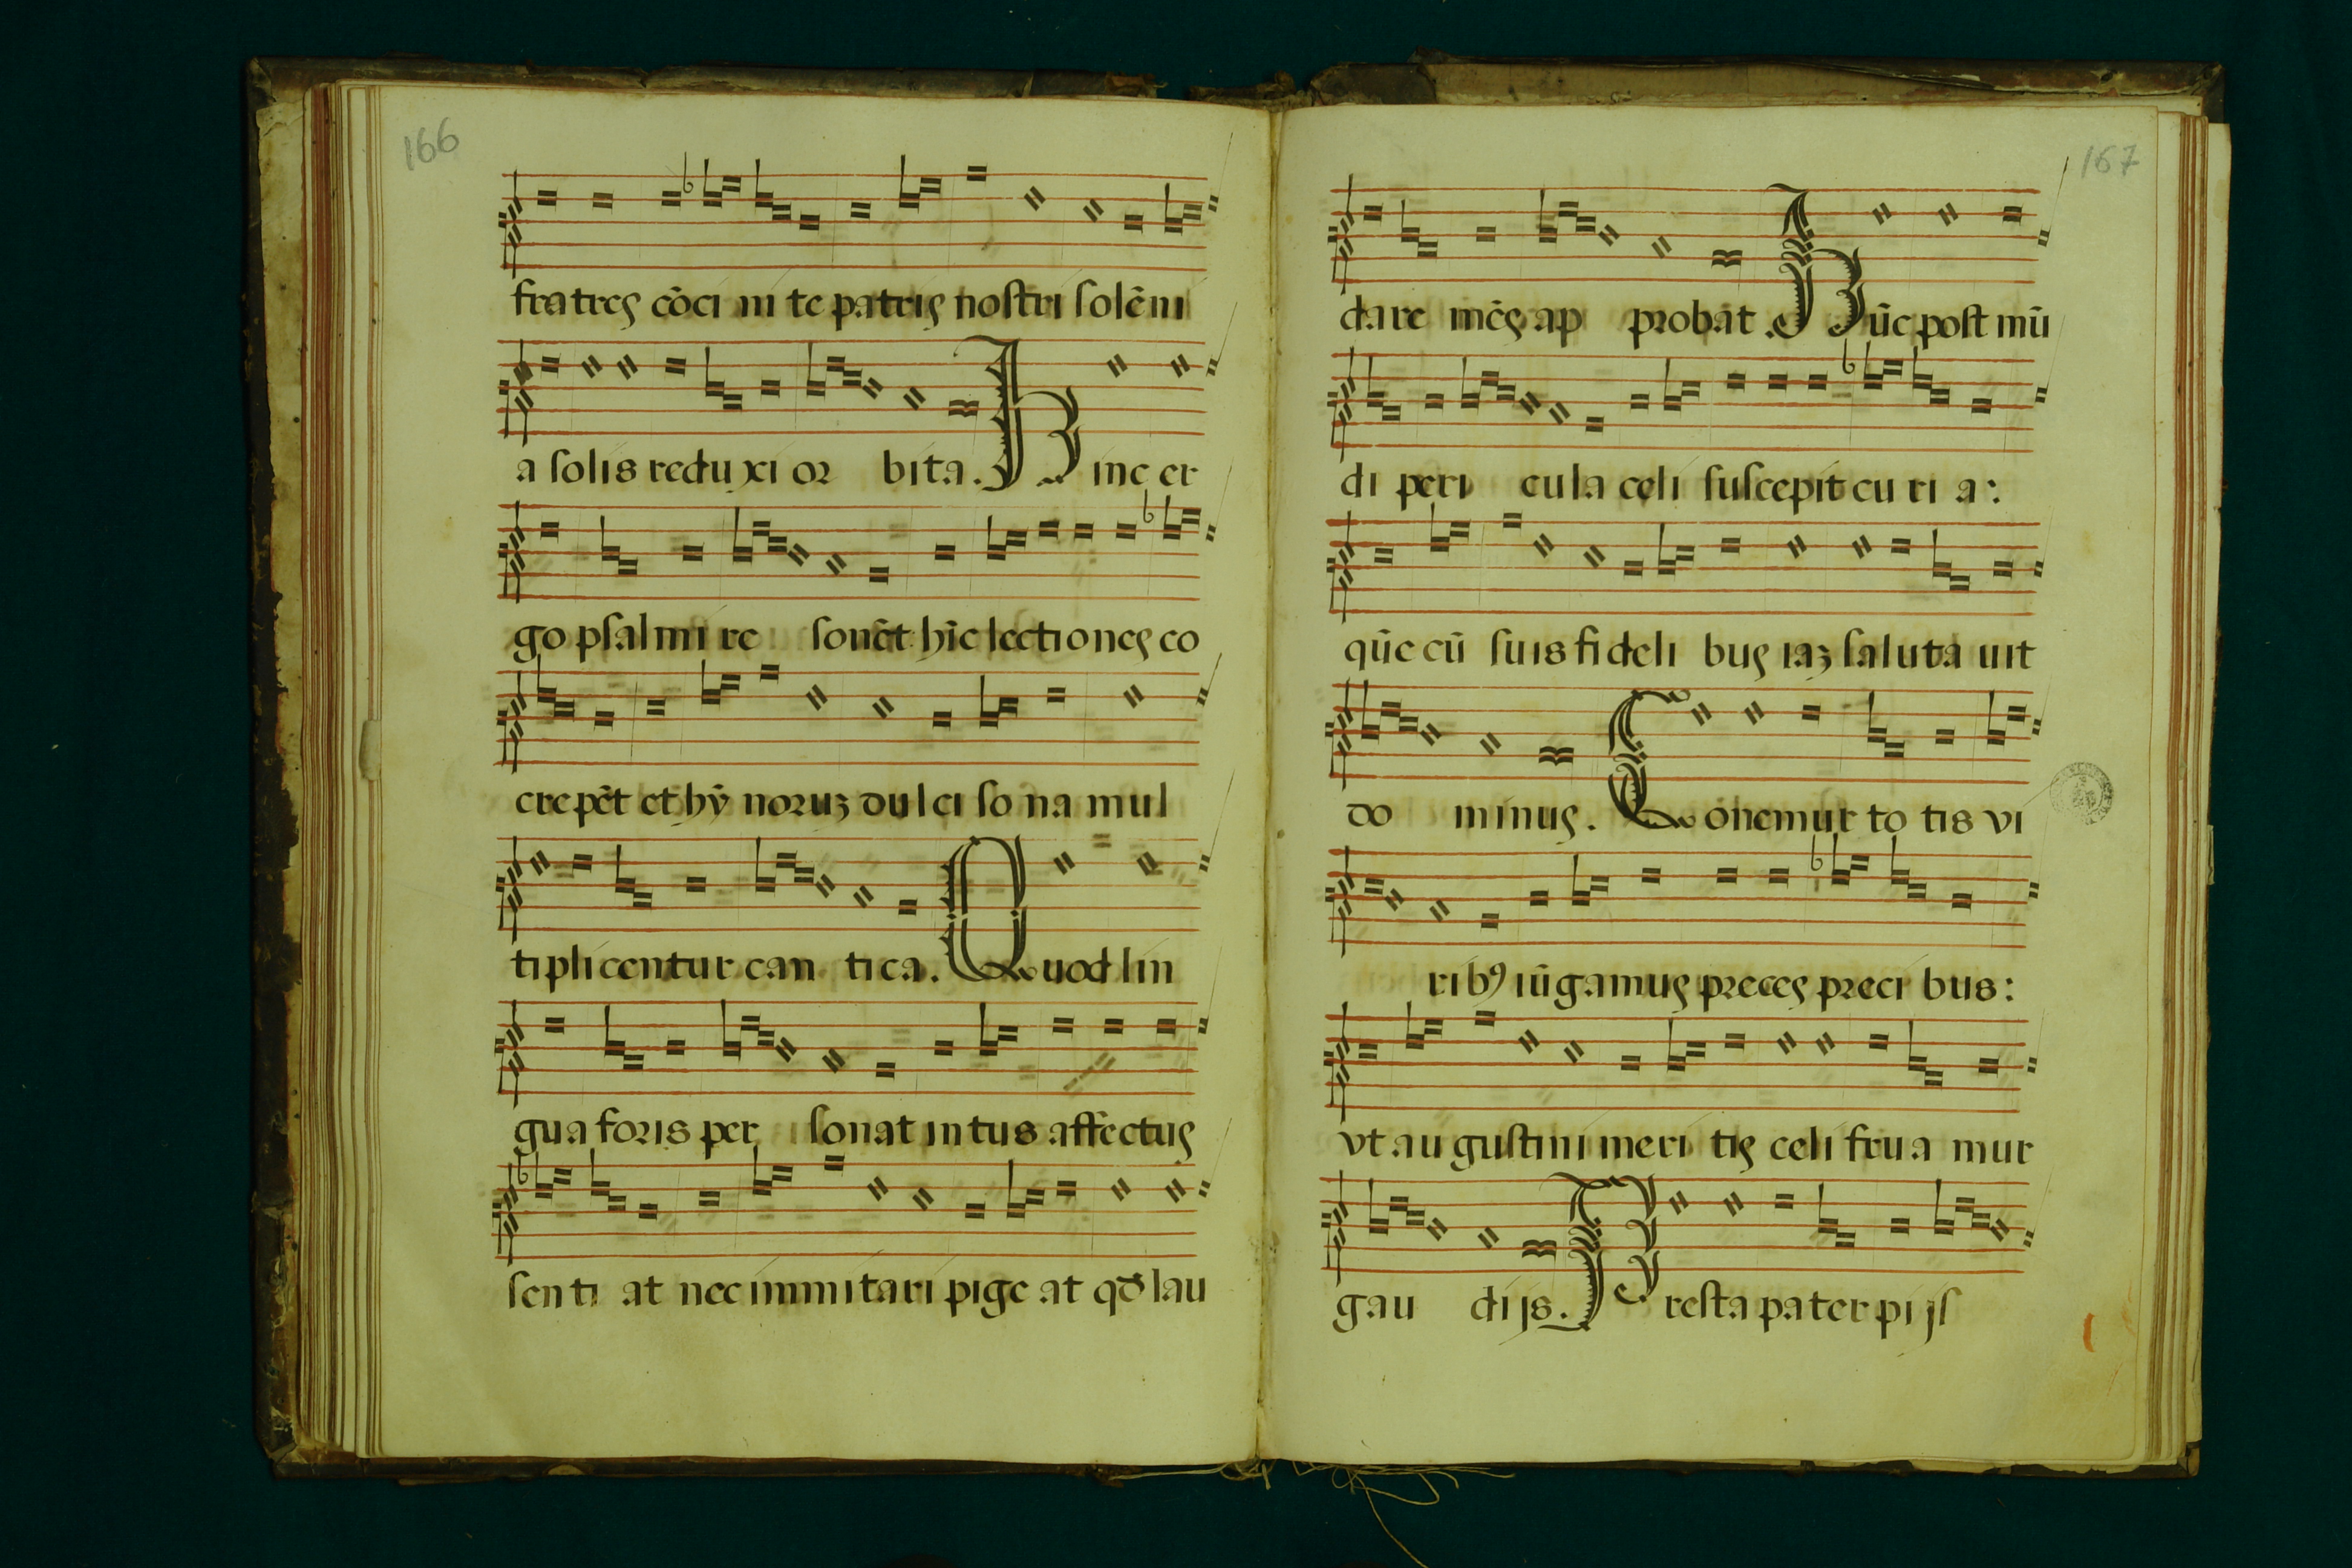 166
fratres cōci ni te patris nostri solēni
a solis redu xi or bita. Hinc er
go psal mi re sonēt hīc lectiones co
crepēt et hȳ noruꝫ dul ci so na mul
tipli centur can ti ca. Quod lin
gua foris per sonat in tus affectus
senti at nec immitari pige at qd̄ lau
167
dare mēs ap probat. Hūc post mū
di peri cula celi suscepit cu ri a:
qūe cū suis fi deli bus iaꝫ saluta uit
do minus. Conemur to tis vi
ribꝰ iūgamus preces preci bus:
vt au gustini meri tis celi frua mur
gau dijs. Presta pater pi jſ